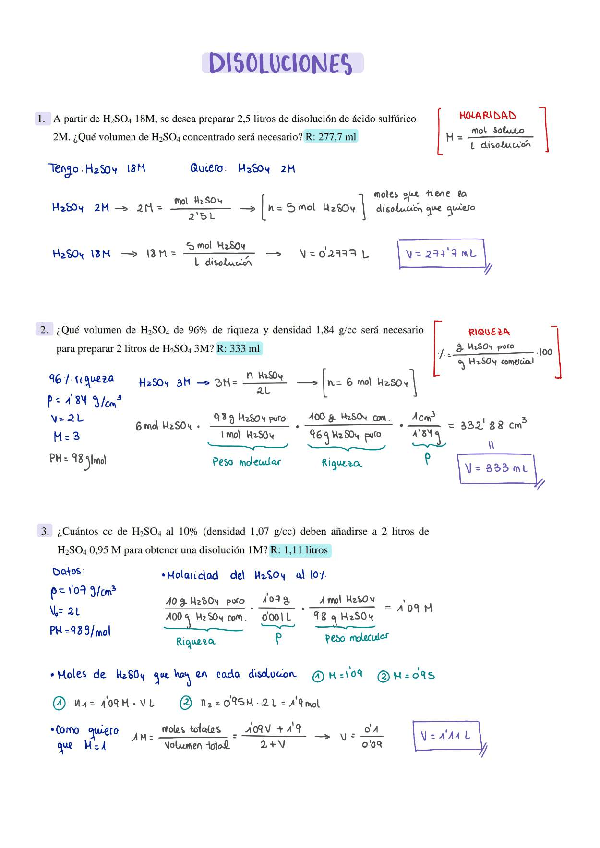 DISOLUCIONES
1. A partir de H₂SO₄ 18M, se desea preparar 2,5 litros de disolución de ácido sulfúrico
2M. ¿Qué volumen de H₂SO₄ concentrado será necesario? R: 277,7 ml
MOLARIDAD
M = mol soluto / L disolución
Tengo: H₂SO₄ 18M Quiero: H₂SO₄ 2M
H₂SO₄ 2M → 2M = mol H₂SO₄ / 2'5 L → [n = 5 mol H₂SO₄] moles que tiene la
disolución que quiero
H₂SO₄ 18M → 18M = 5 mol H₂SO₄ / L disolución → V = 0'2777 L V = 277'7 mL
2. ¿Qué volumen de H₂SO₄ de 96% de riqueza y densidad 1,84 g/cc será necesario
para preparar 2 litros de H₂SO₄ 3M? R: 333 ml
RIQUEZA
% = g H₂SO₄ puro / g H₂SO₄ comercial · 100
96% riqueza
ρ = 1'84 g/cm³
V = 2L
M = 3
PM = 98g/mol
H₂SO₄ 3M → 3M = n H₂SO₄ / 2L → [n = 6 mol H₂SO₄]
6 mol H₂SO₄ · 98g H₂SO₄ puro / 1 mol H₂SO₄ · 100 g H₂SO₄ com. / 96g H₂SO₄ puro · 1cm³ / 1'84g = 332'88 cm³
Peso molecular Riqueza ρ
=
V = 333 mL
3. ¿Cuántos cc de H₂SO₄ al 10% (densidad 1,07 g/cc) deben añadirse a 2 litros de
H₂SO₄ 0,95 M para obtener una disolución 1M? R: 1,11 litros
Datos:
ρ = 1'07 g/cm³
V₀ = 2L
PM = 98g/mol
• Molaridad del H₂SO₄ al 10%
10 g H₂SO₄ puro / 100 g H₂SO₄ com. · 1'07 g / 0'001 L · 1 mol H₂SO₄ / 98 g H₂SO₄ = 1'09 M
Riqueza ρ Peso molecular
• Moles de H₂SO₄ que hay en cada disolución ① M = 1'09 ② M = 0'95
① n₁ = 1'09 M · V L ② n₂ = 0'95M · 2 L = 1'9 mol
• Como quiero
que M = 1
1M = moles totales / volumen total = 1'09V + 1'9 / 2 + V → V = 0'1 / 0'09 V = 1'11 L